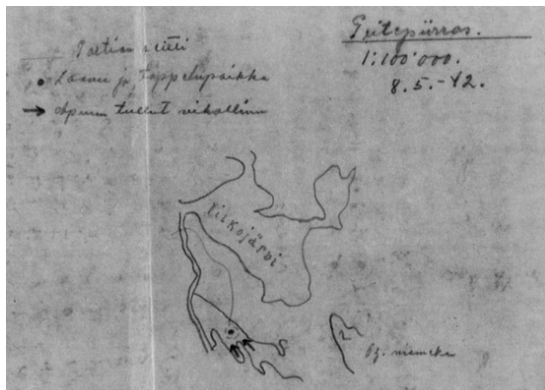 Partion reitti
Laavu ja tappelupaikka
Apuun tullut vihollinen
Peitepiirros.
1:100'000.
8.5.-42.
Lilkojärvi